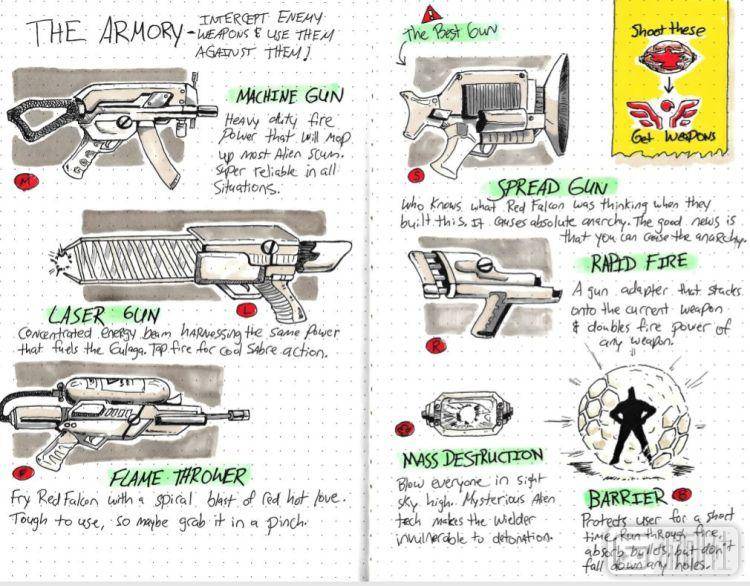 THE ARMORY - INTERCEPT ENEMY
WEAPONS & USE THEM
AGAINST THEM!
MACHINE GUN
Heavy duty fire
Power that will mop
up most Alien scum.
Super reliable in all
Situations.
M
LASER GUN
L
Concentrated energy beam harnessing the same power
that fuels the Gulaga. Tap fire for cool Sabre action.
F
FLAME THROWER
Fry Red Falcon with a spiral blast of red hot love.
Tough to use, so maybe grab it in a pinch.
The Best Gun
S
Shoot these
Get Weapons
SPREAD GUN
Who knows what Red Falcon was thinking when they
built this. It causes absolute anarchy. The good news is
that you can cause the anarchy.
R
RAPID FIRE
A gun adapter that stacks
onto the current weapon
& doubles fire power of
any weapon.
MASS DESTRUCTION
Blow everyone in sight
sky high. Mysterious Alien
tech makes the wielder
invulnerable to detonation.
BARRIER B
Protects user for a short
time. Run through fire,
absorb bullets, but don't
fall down any holes.